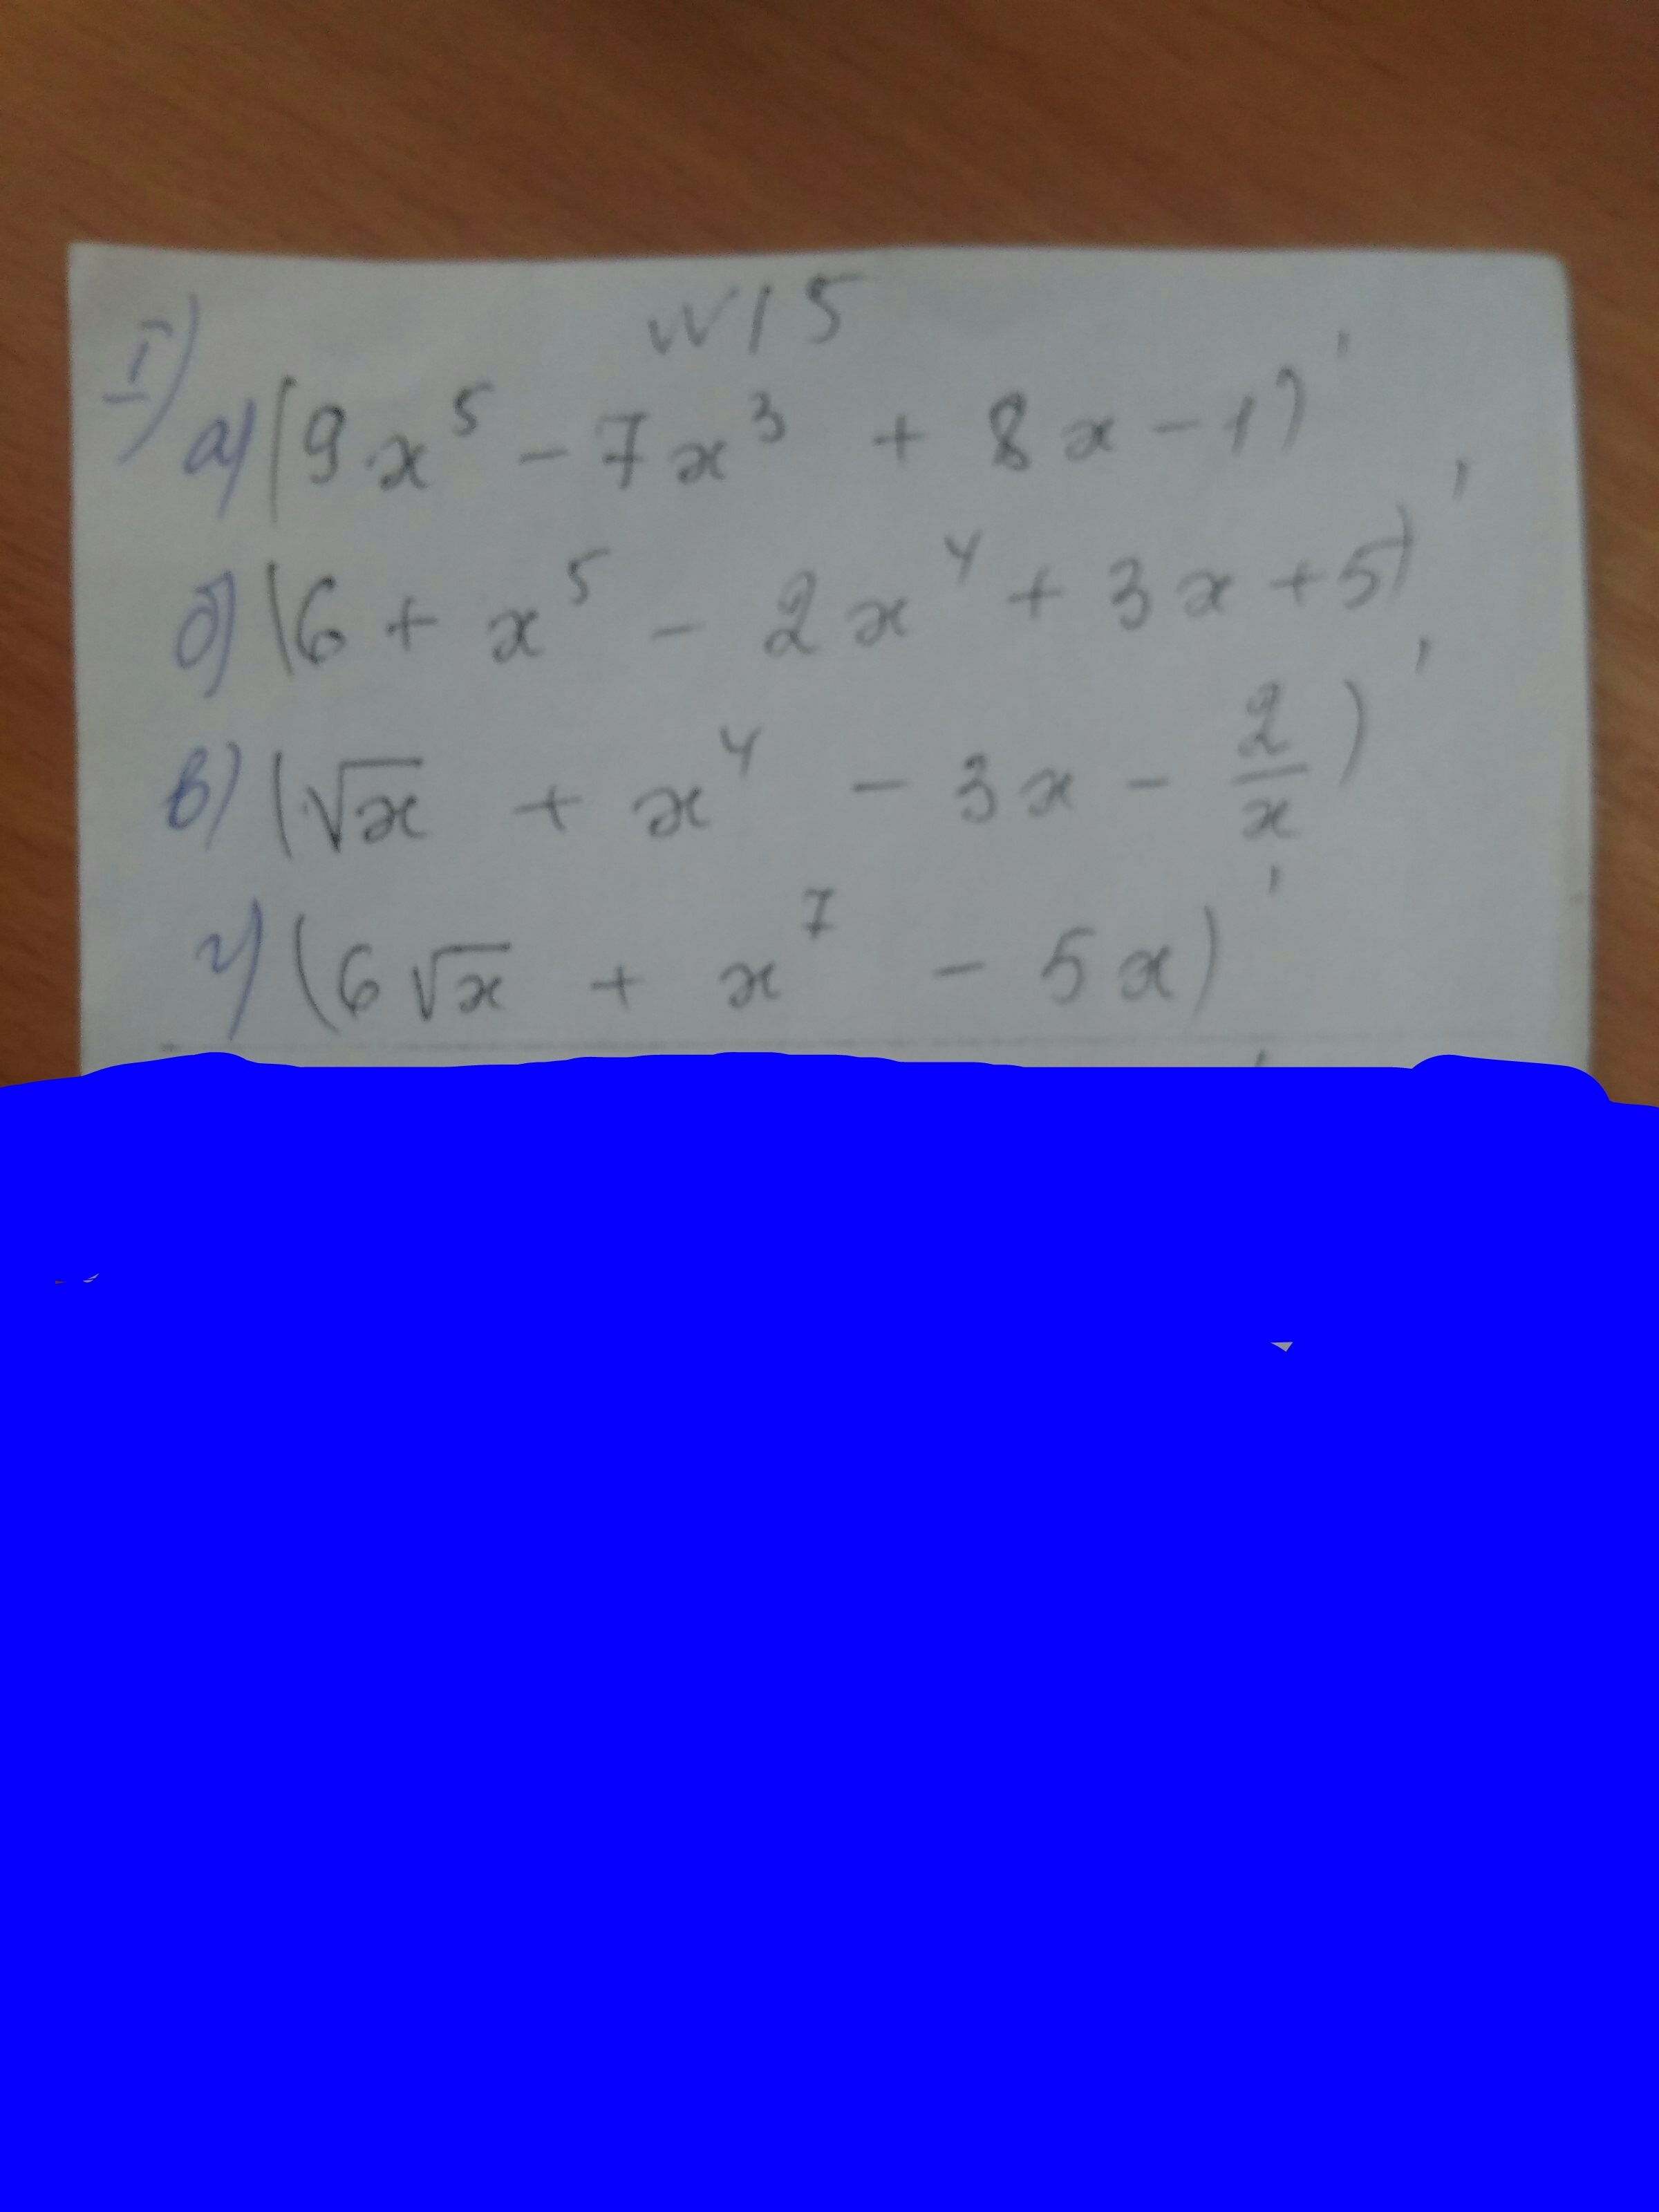 N15
I) а) (9x⁵ - 7x³ + 8x - 1)'
б) (6 + x⁵ - 2x⁴ + 3x + 5)'
в) (√x + x⁴ - 3x - 2/x)'
г) (6√x + x⁷ - 5x)'